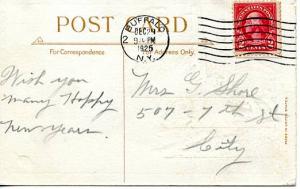 POST CARD
For Correspondence
For Address Only.
BUFFALO
DEC 29
PM
1925
N.Y.
2 CENTS 2
Wish you
many Happy
New years.
Mrs G. Shore
507-7th St
City